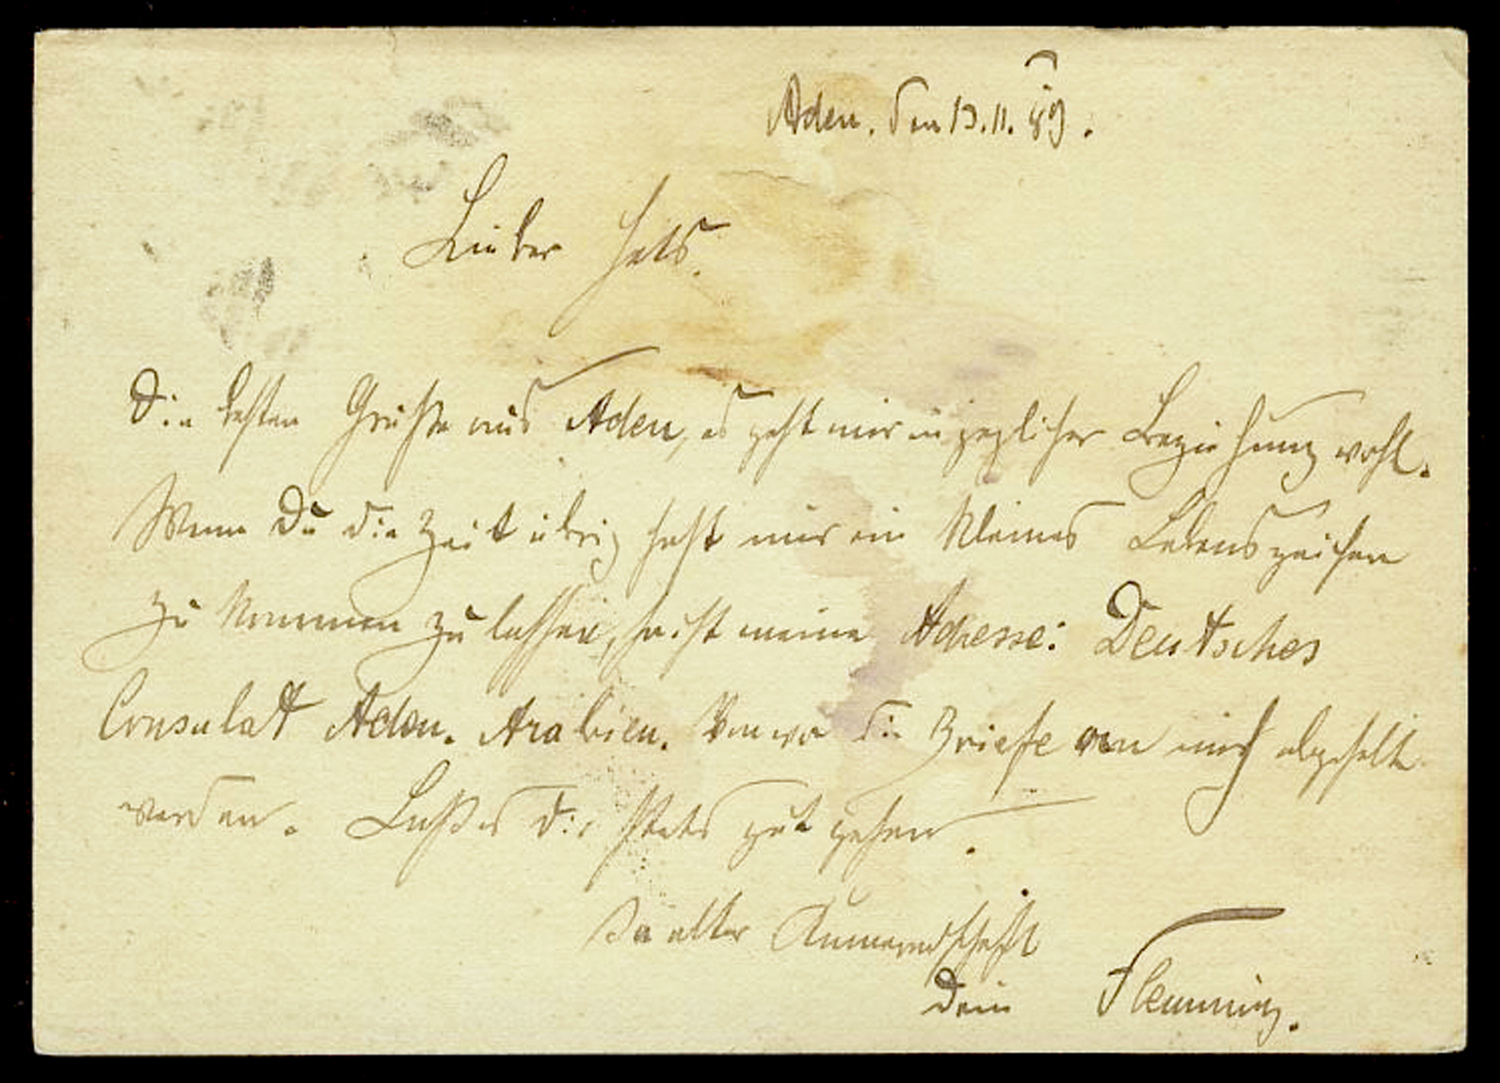 Aden. den 13.11.89.
Lieber
Die besten Grüße aus Aden, es geht mir in jeglicher Beziehung wohl.
Wenn Du die Zeit übrig hast mir ein kleines Lebenszeichen
zu kommen zu lassen, so ist meine Adresse: Deutsches
Consulatt Aden. Arabien. Von wo die Briefe von mir abgeholt
werden. Laß es dir stets gut gehen.
In alter
Dein Flemming.